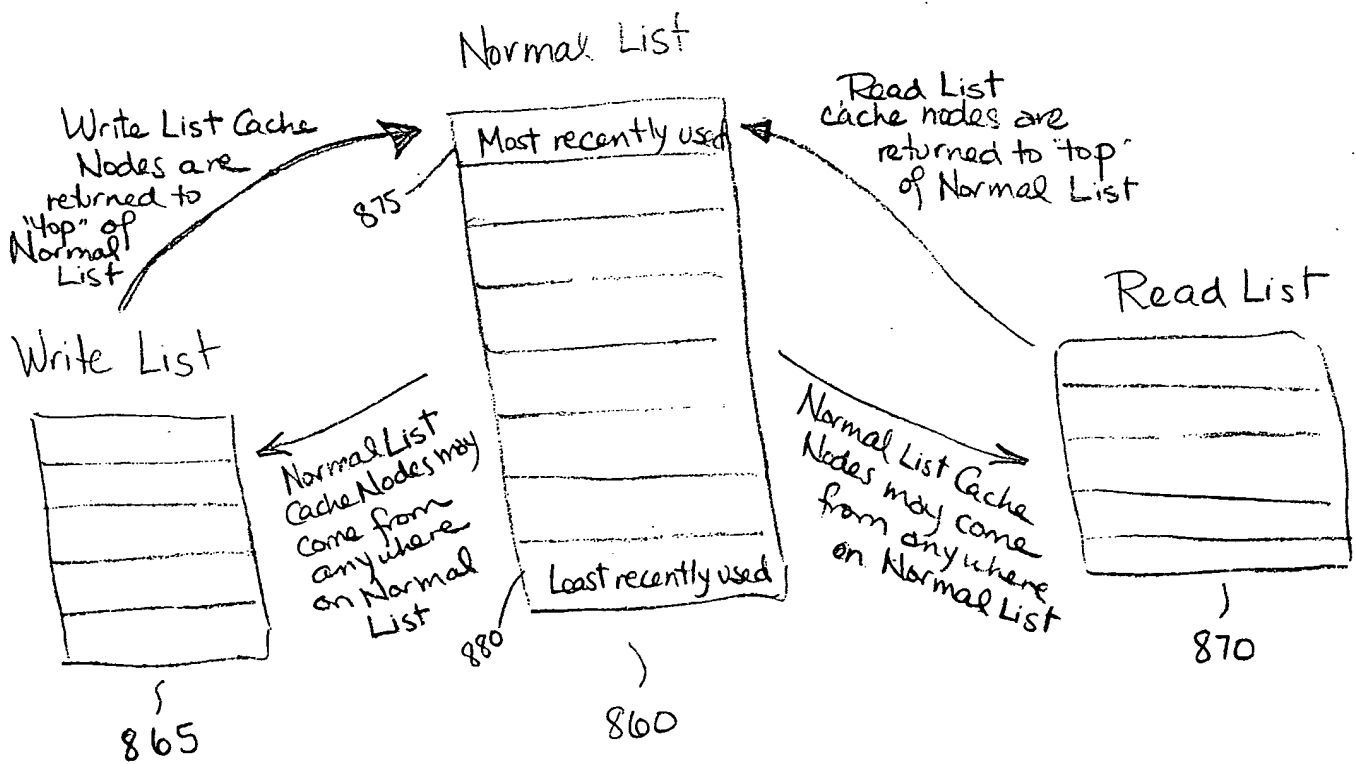 Normal List
Write List Cache
Nodes are
returned to
"top" of
Normal
List
Most recently used
875
Read List
cache nodes are
returned to "top"
of Normal List
Read List
Write List
Normal List
Cache Nodes may
come from
anywhere
on Normal
List
Normal List Cache
Nodes may come
from anywhere
on Normal List
Least recently used
880
870
860
865